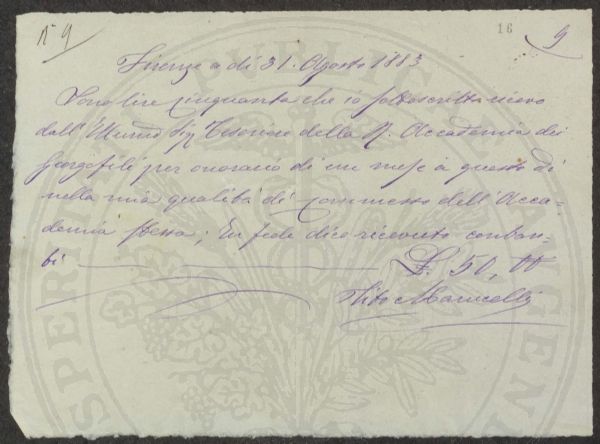 N° 9
16
9
Firenze a dì 31. Agosto 1883
Sono lire cinquanta che io sottoscritto ricevo
dall' Illmo Sig Tesoriere della R. Accademia dei
Georgofili per onorario di un mese a questo dì
nella mia qualità di commesso dell' Acca-
demia stessa; In fede dico ricevuto contan-
ti L. 50, 00
Tito
PUBLICAE